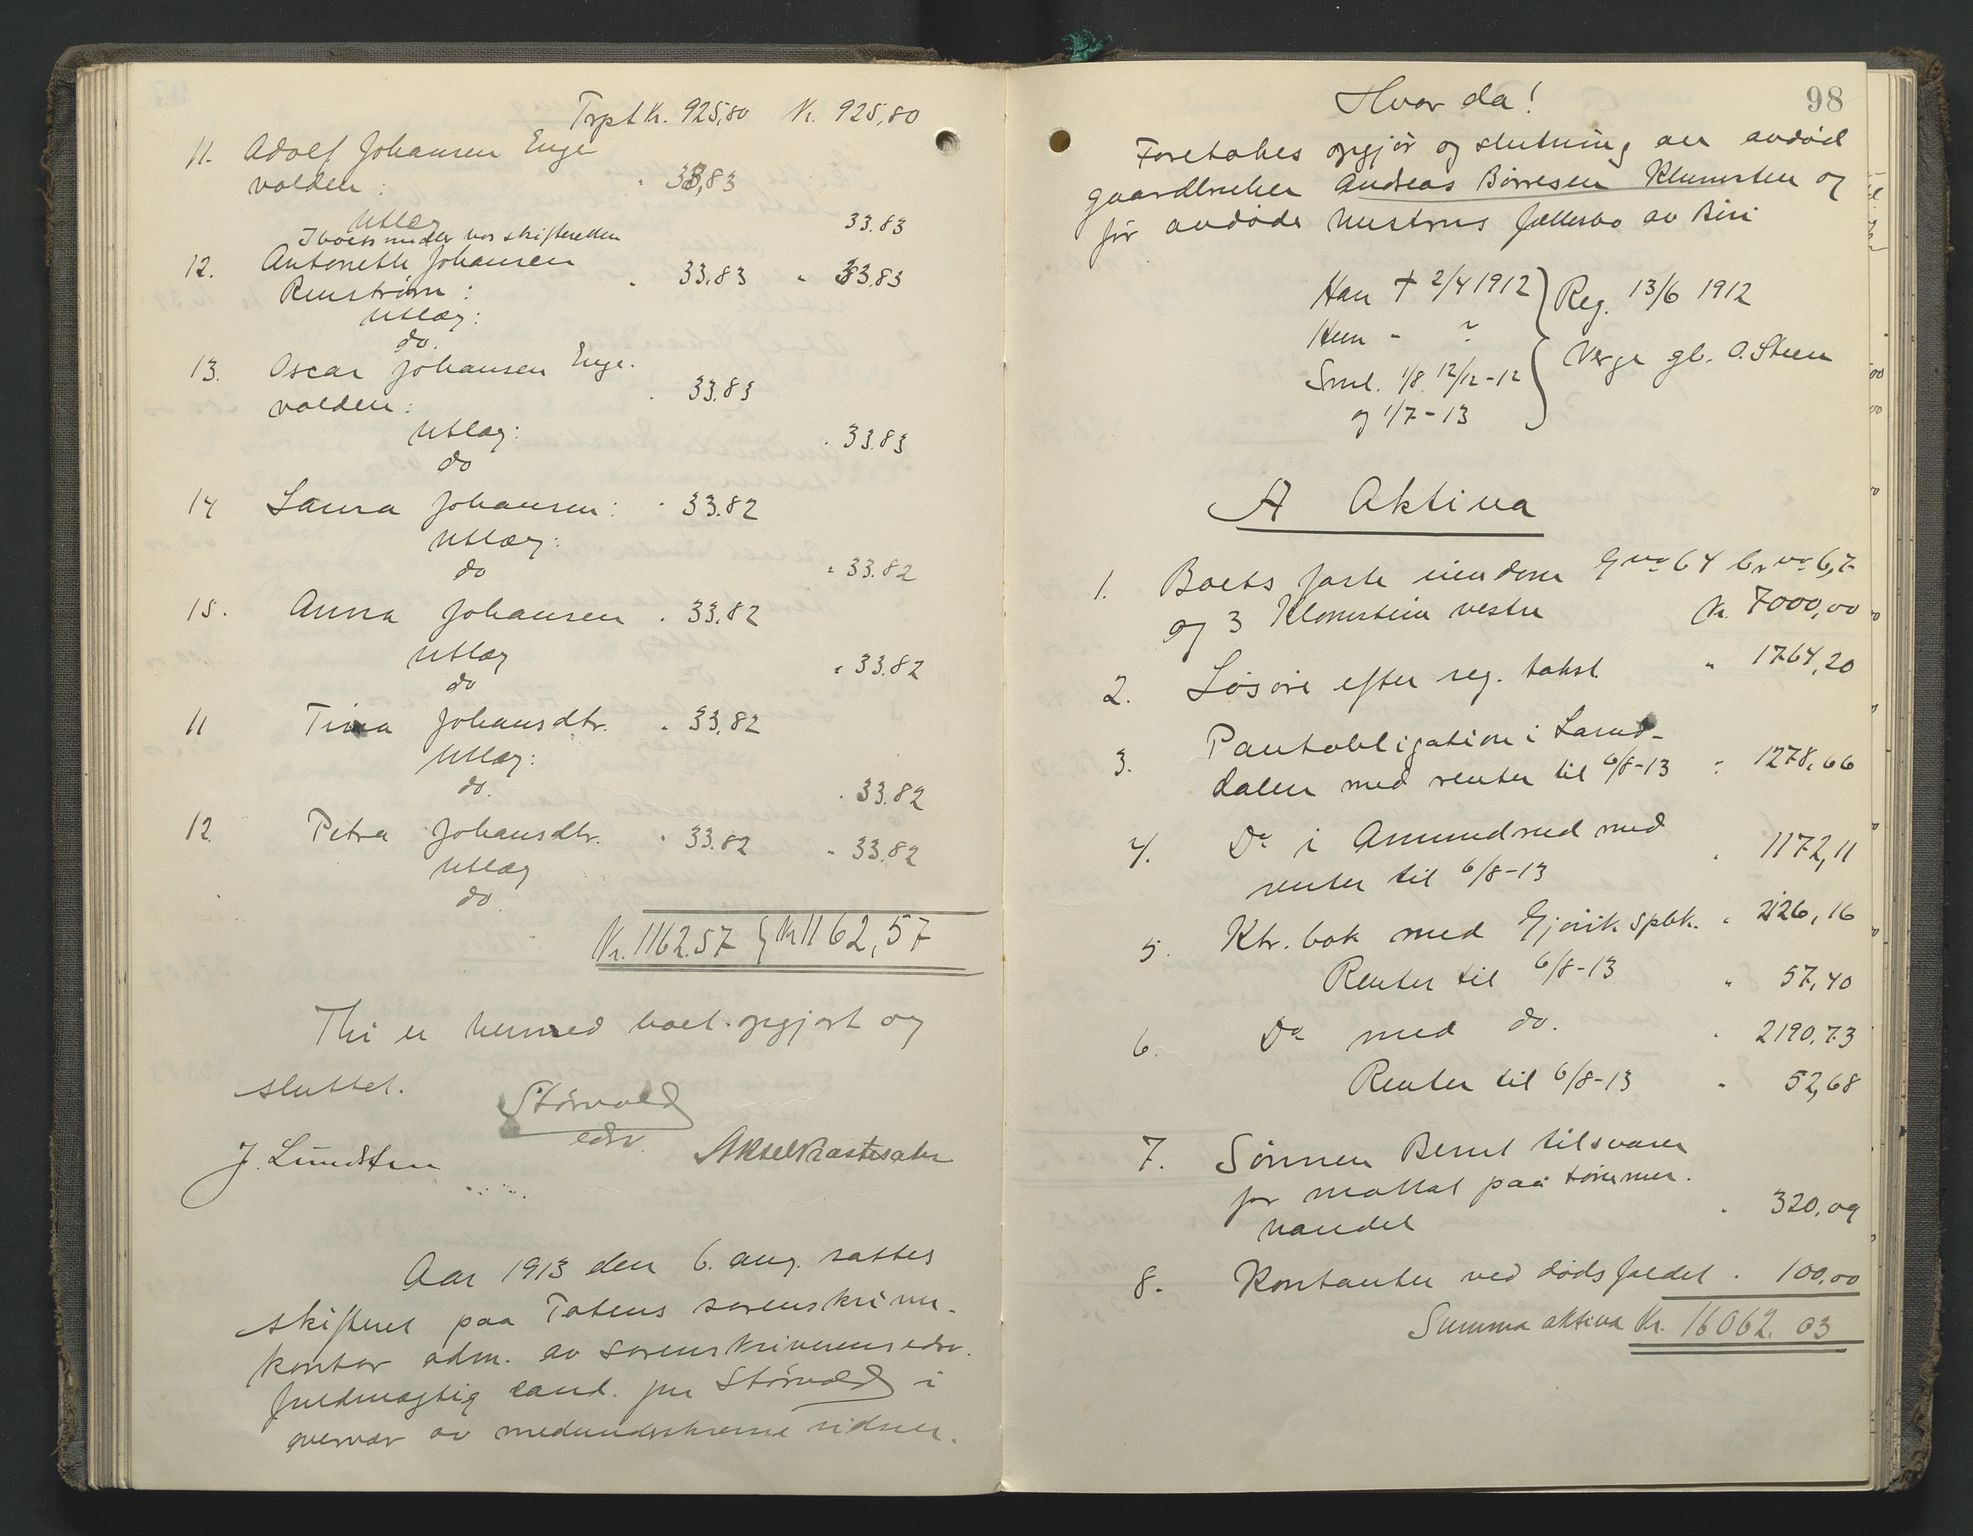 Trpt Kr. 925,80 Kr. 925,80
11. Adolf Johansen Enge
volden: " 33,83
Utlæg
I boets midler hos skifteretten 33.83
12. Antonette Johansen
Renström: " 33.83 " 33.83
Utlæg:
do.
13. Oscar Johansen Enge-
volden: " 33.83
Utlæg: " 33.83
do
14 Laura Johansen: " 33.82
Utlæg:
do " 33.82
15. Anna Johansen " 33.82
Utlæg
do " 33.82
11 Tina Johansdtr. " 33,82
Utlæg:
do. " 33.82
12. Petra Johansdtr. " 33.82 " 33.82
Utlæg
do
Kr. 1162.57 Kr 1162,57
Thi er hermed boet opgjort og
sluttet.
Störvold
edsv.
J. Lundsten Aksel Rastesater
Aar 1913 den 6. aug. sattes
skifteret paa Totens sorenskriver-
kontor adm. av sorenskriverens edsv.
fuldmægtig cand. jur Störvold i
overvær av medunderskrevne vidner.
98
Hvor da!
Foretokes opgjør og slutning av avdød
gaardbruker Andreas Børresen Klumsten og
før avdøde hustrus fællesbo av Biri
Han † 2/4 1912 Reg. 13/6 1912
Hun " ?
Verge gb. O. Steen
Sml. 1/8, 12/12-12
og 1/7-13
A Aktiva
1. Boets faste eiendom Gno 64 br. no 6,7
og 3 Klomstein vestre Kr. 7000,00
2. Løsøre efter reg. takst " 1764,20
3. Pantobligation i Land-
dalen med renter til 6/8-13 " 1278,66
4. Do i Amundrud med
renter til 6/8-13 " 1172,11
5. Ktr. bok med Gjøvik spbk. " 2126,16
Renter til 6/8-13 " 57,40
6. Do med do. " 2190,73
Renter til 6/8-13 " 52,68
7. Sønnen Bernt tilsvarer
for mottat paa tømmer-
handel " 320,09
8. Kontanter ved dødsfaldet " 100,00
Summa aktiva Kr. 16062.03